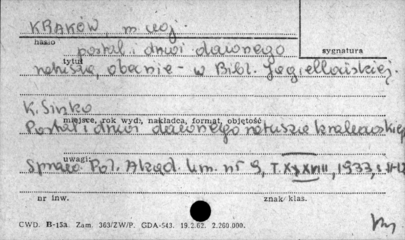 KRAKÓW, m. woj.
hasło
portal i drzwi dawnego
sygnatura
tytuł
ratusza, obecnie - w Bibl. Jagiellońskiej.
K. Sinko
miejsce, rok wyd., nakładca, format, objętość
Portal i drzwi dawnego ratusza krakowskiego
uwagi
Spraw. Pol. Akad. Um. nr 9, T. XXXVIII, 1933, s.
nr inw.
znak klas.
CWD. B-15a. Zam. 363/ZW/P. GDA-543. 19.2.62. 2.200.000.